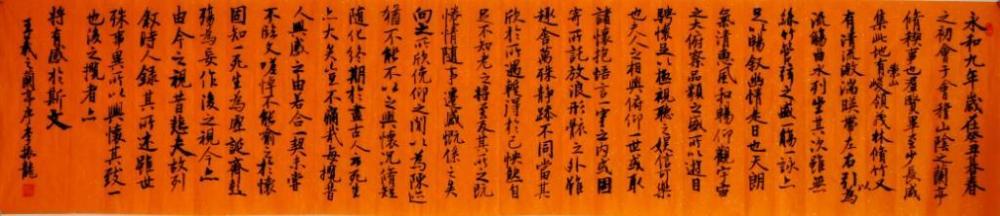 永和九年歲在癸丑暮春
之初會于會稽山陰之蘭亭
脩稧事也羣賢畢至少長咸
集此地有崇山峻領茂林脩竹又
有清流激湍暎帶左右引以為
流觴曲水列坐其次雖無
絲竹管弦之盛一觴一詠亦
足以暢叙幽情是日也天朗
氣清惠風和暢仰觀宇宙
之大俯察品類之盛所以遊目
騁懷足以極視聽之娛信可樂
也夫人之相與俯仰一世或取
諸懷抱悟言一室之内或因
寄所託放浪形骸之外雖
趣舍萬殊靜躁不同當其
欣於所遇暫得於己快然自
足不知老之將至及其所之既
惓情隨事遷感慨係之矣
向之所欣俛仰之間以為陳迹
猶不能不以之興懷況脩短
隨化終期於盡古人云死生
亦大矣豈不痛哉每攬昔
人興感之由若合一契未嘗
不臨文嗟悼不能喻之於懷
固知一死生為虛誕齊彭
殤為妄作後之視今亦
由今之視昔悲夫故列
叙時人錄其所述雖世
殊事異所以興懷其致一
也後之攬者亦
將有感於斯文
王羲之蘭亭序李振龍